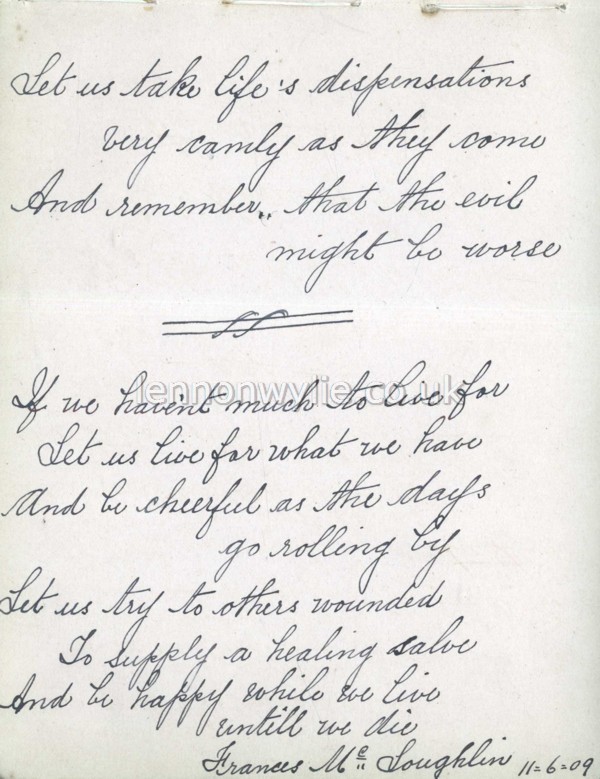 Let us take life's dispensations
very camly as they come
And remember,, that the evil
might be worse
lennonwylie.co.uk
If we haven't much to live for
Let us live for what we have
And be cheerful as the days
go rolling by
Let us try to others wounded
To supply a healing salve
And be happy while we live
untill we die
Frances Mc Loughlin 11=6=09